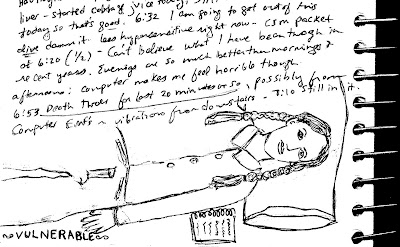 liver - started cabbage juice today,
today so that's good. 6:32 I am going to get out of this
alive damn it. less hypersensitive right now - CSM packet
at 6:20 (1/2) - Can't believe what I have been through in
recent years. Evenings are so much better than mornings &
afternoons: computer makes me feel horrible though.
6:53 Death throes for last 20 minutes or so, possibly from
Computer Emf's or vibrations from downstairs - 7:10 still in it.
VULNERABLE